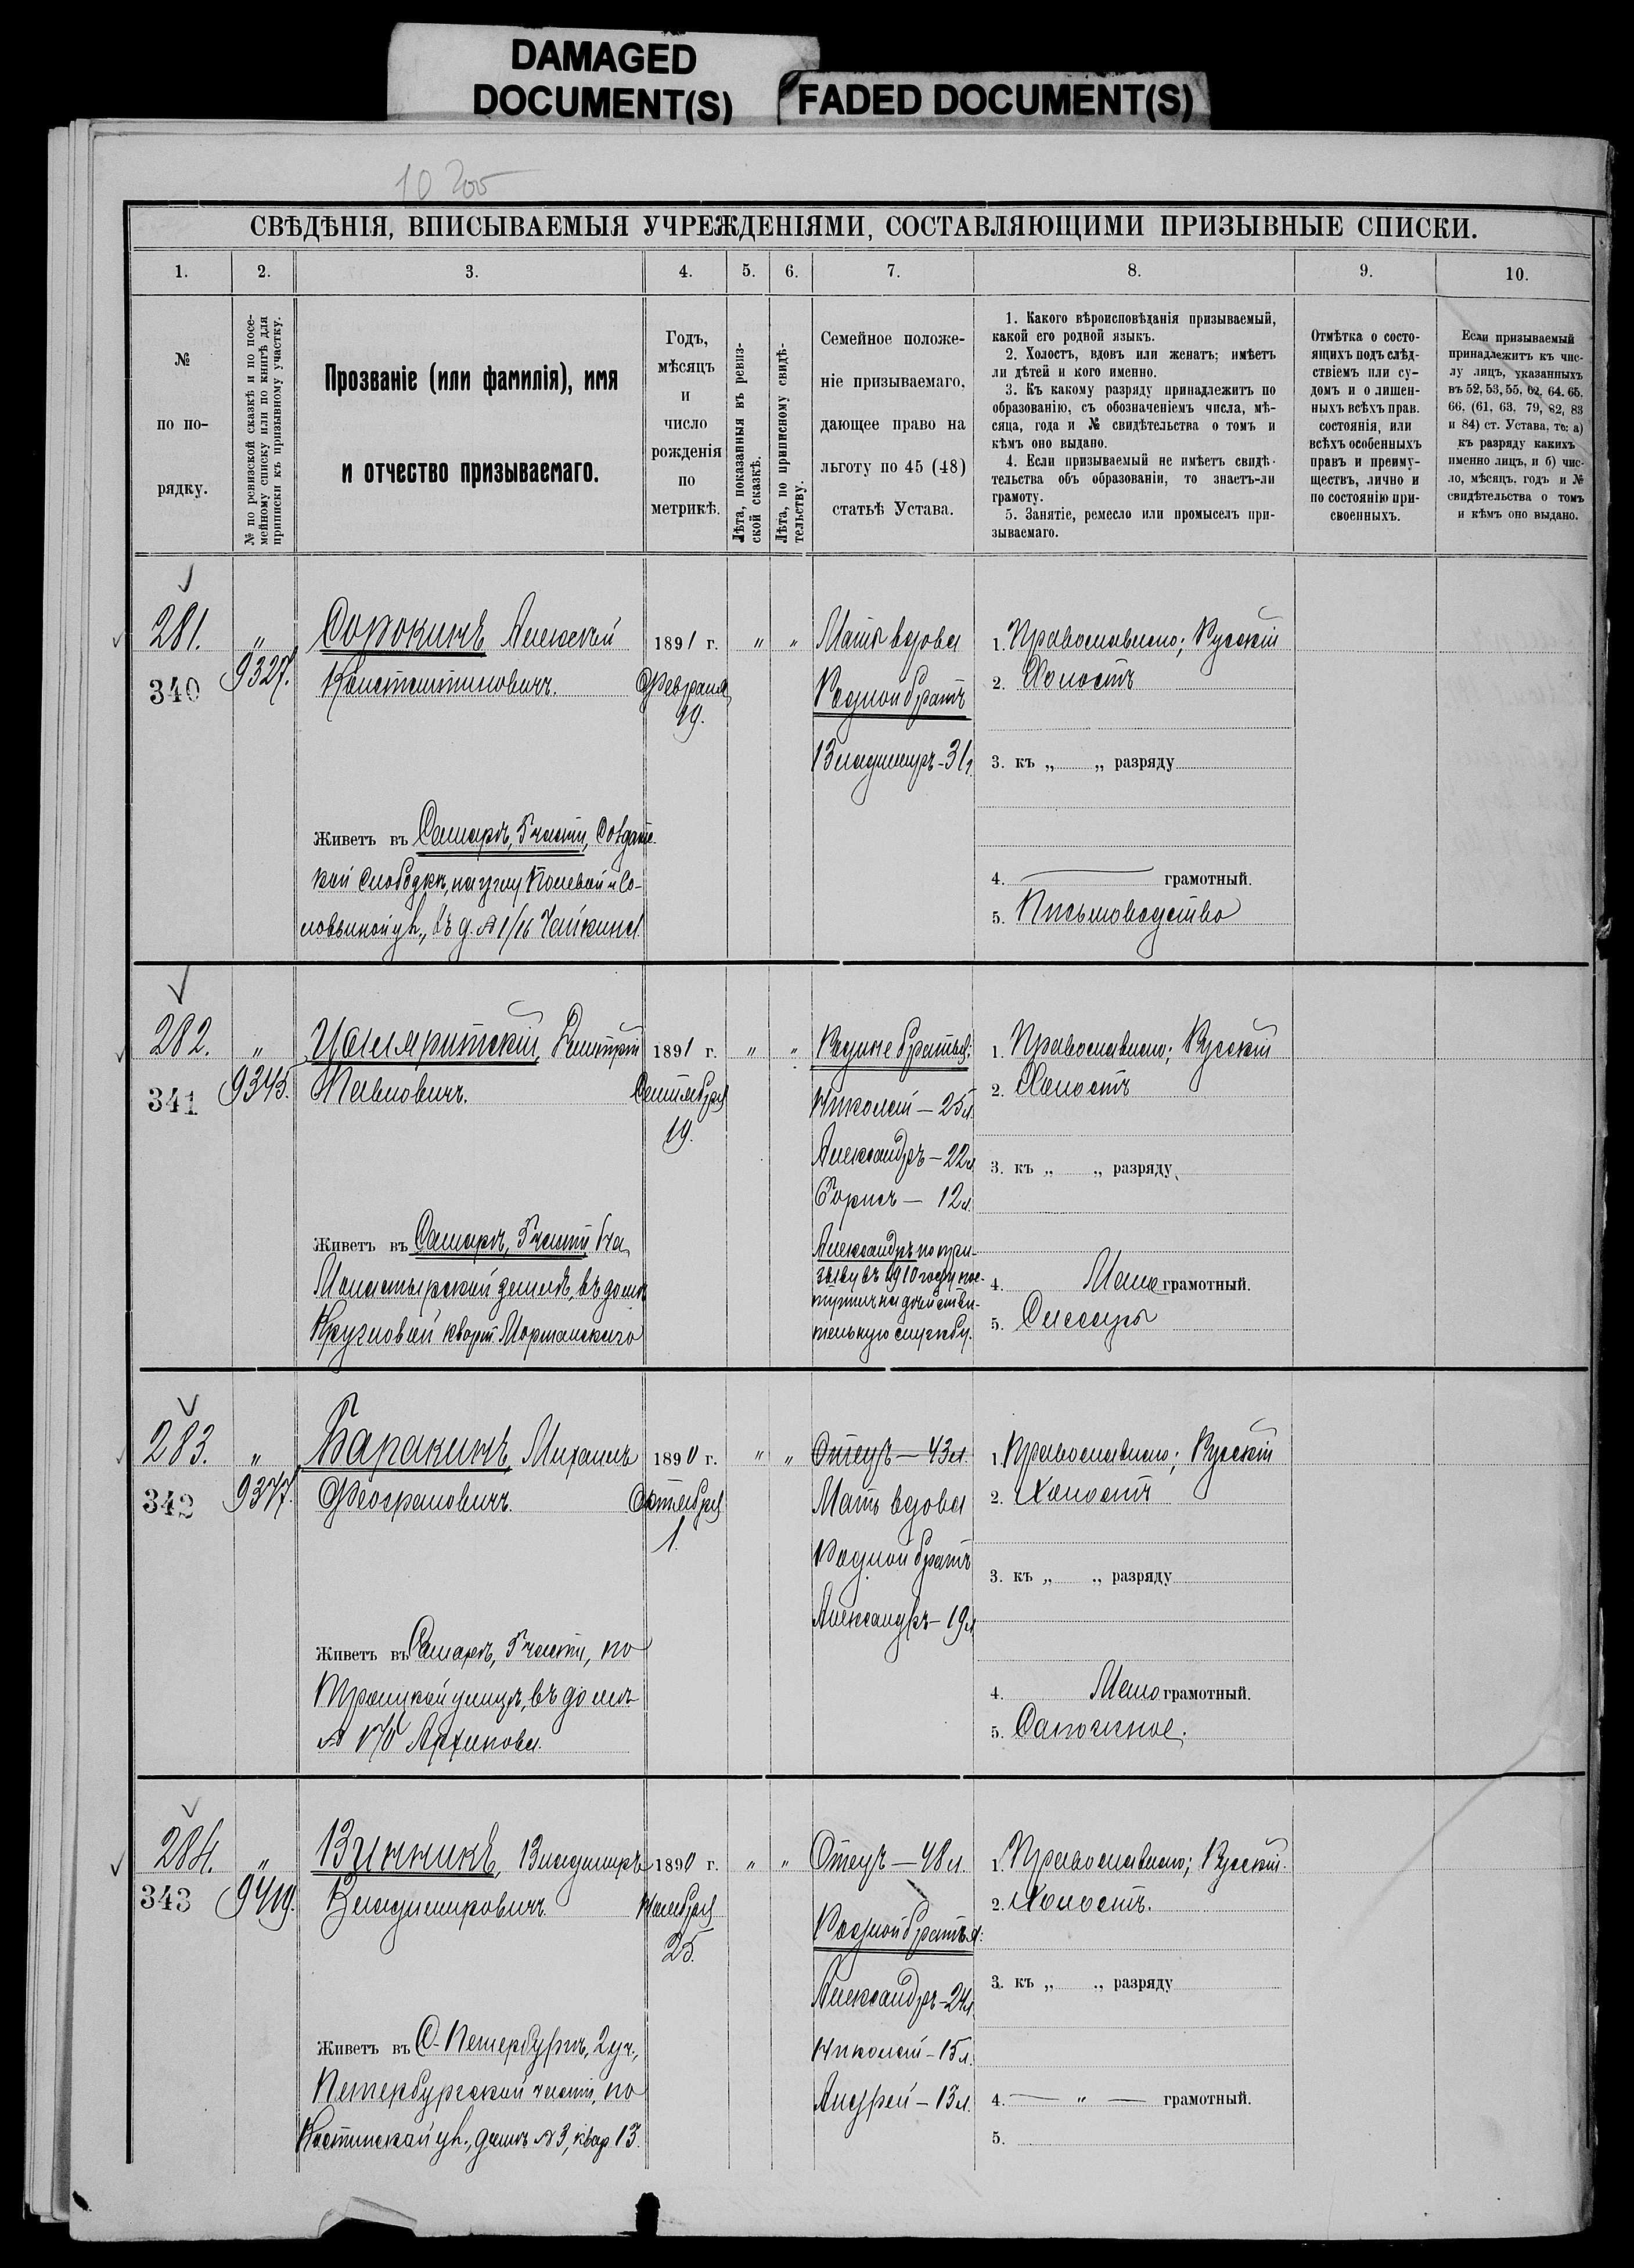 DAMAGED
DOCUMENT(S)
FADED DOCUMENT(S)
10 205
СВѢДѢНІЯ, ВПИСЫВАЕМЫЯ УЧРЕЖДЕНІЯМИ, СОСТАВЛЯЮЩИМИ ПРИЗЫВНЫЕ СПИСКИ.
1. 2. 3. 4. 5. 6. 7. 8. 9. 10.
№
по по-
рядку.
№ по ревизской сказкѣ и по посе-
мейному списку или по книгѣ для
приписки къ призывному участку.
Прозваніе (или фамилія), имя
и отчество призываемаго.
Годъ,
мѣсяцъ
и
число
рожденія
по
метрикѣ.
Лѣта, показанныя въ ревиз-
ской сказкѣ.
Лѣта, по приписному свидѣ-
тельству.
Семейное положе-
ніе призываемаго,
дающее право на
льготу по 45 (48)
статьѣ Устава.
1. Какого вѣроисповѣданія призываемый,
какой его родной языкъ.
2. Холостъ, вдовъ или женатъ; имѣетъ
ли дѣтей и кого именно.
3. Къ какому разряду принадлежитъ по
образованію, съ обозначеніемъ числа, мѣ-
сяца, года и № свидѣтельства о томъ и
кѣмъ оно выдано.
4. Если призываемый не имѣетъ свидѣ-
тельства объ образованіи, то знаетъ-ли
грамоту.
5. Занятіе, ремесло или промыселъ при-
зываемаго.
Отмѣтка о состо-
ящихъ подъ слѣд-
ствіемъ или су-
домъ и о лишен-
ныхъ всѣхъ прав.
состоянія, или
всѣхъ особенныхъ
правъ и преиму-
ществъ, лично и
по состоянію при-
своенныхъ.
Если призываемый
принадлежитъ къ чис-
лу лицъ, указанныхъ
въ 52, 53, 55, 62, 64. 65.
66, (61, 63, 79, 82, 83
и 84) ст. Устава, то: а)
къ разряду какихъ
именно лицъ, и б) чис-
ло, мѣсяцъ, годъ и №
свидѣтельства о томъ
и кѣмъ оно выдано.
281.
340
"
9327.
Сорокинъ Алексѣй
Константиновичъ.
Живетъ въ Самарѣ, 5 части, Солдатс-
кой слободкѣ, на углу Полевой и Со-
ловьиной ул., въ д. № 1/16 Чайкина
1891 г.
Февраля
" "
Мать вдова
Родной братъ
Владимиръ - 31 г.
1. Православно; Русскій
2. Холостъ
3. къ „ „ разряду
4. грамотный.
5. Письмоводство
282.
341
"
9345.
Дмитрій
Павловичъ.
Живетъ въ Самарѣ, 5 части, на
Монастырской землѣ, въ домѣ
Кругловой кварт. Моршанскаго
1891 г.
Сентября
19.
" "
Родные братья:
Николай — 25 л.
Александръ — 22 л.
Борисъ — 12 л.
Александръ по при-
зыву въ 1910 году пос-
тупилъ на дѣйстви-
тельную службу.
1. Православно; Русскій
2. Холостъ
3. къ „ „ разряду
4. Мало грамотный.
5. Слесарь
283.
342
"
9377.
Баракинъ, Михаилъ
Живетъ въ Самарѣ, 5 части, по
Троицкой улицѣ, въ домѣ
№ 170 Архипова.
1890 г.
Октября
1.
" "
Отецъ — 43 л.
Мать вдова
Родной братъ
Александръ — 19 л.
1. Православно; Русскій
2. Холостъ
3. къ „ „ разряду
4. Мало грамотный.
5. Сапожное.
284.
343
"
9419.
Владимиръ
Владимировичъ.
Живетъ въ С-Петербургѣ, 2 уч.,
Петербургской части, по
ул., домъ № 3, квар 13.
1890 г.
Ноября
25.
" "
Отецъ — 48 л.
Родной братья:
Александръ — 24 л.
Николай — 15 л.
Андрей — 13 л.
1. Православно; Русскій.
2. Холостъ.
3. къ „ „ разряду
4. — " — грамотный.
5.